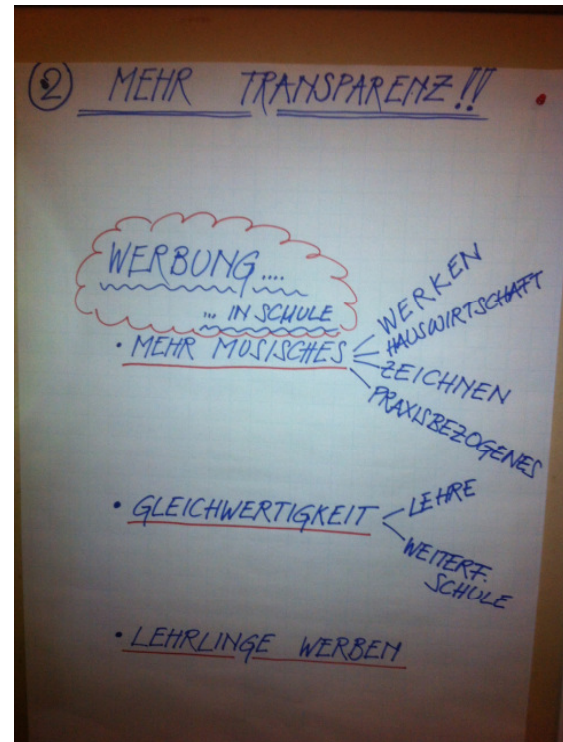 ② MEHR TRANSPARENZ!!!
WERBUNG....
... IN SCHULE
• MEHR MUSISCHES
WERKEN
HAUSWIRTSCHAFT
ZEICHNEN
PRAXISBEZOGENES
• GLEICHWERTIGKEIT
LEHRE
WEITERF.
SCHULE
• LEHRLINGE WERBEN